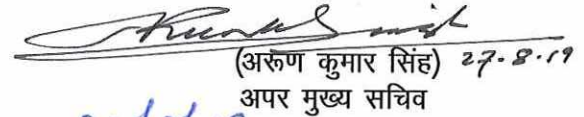 (अरूण कुमार सिंह) 27.8.19
अपर मुख्य सचिव